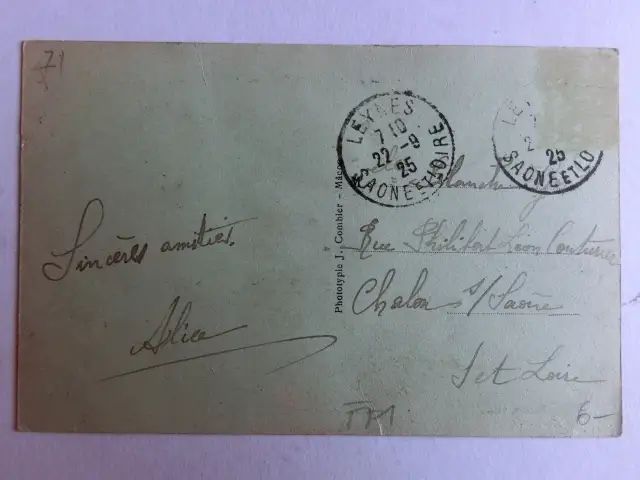 71
LEYNES
7 10
22-9
25
SAONE ET LOIRE
LE
2
25
SAONE ET LO
Phototypie J. Combier - Mâcon
Rue Philibert Léon Couturier
Chalon s/Saône
S et Loire
Sincères amitiés.
Alice
6-